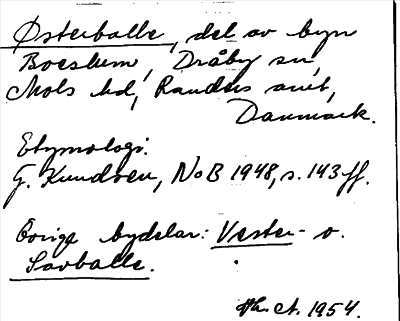 Østerballe, del av byn
Boeslum, Dråby sn,
Mols hd, Randers amt,
Danmark.
Etymologi.
G. Knudsen, NoB 1948, s. 143 ff.
Övriga bydelar: Vester- o.
Savballe.
ct. 1954.